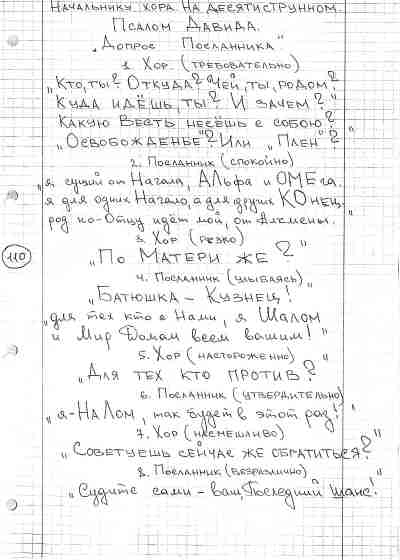 Начальнику хора. На десятиструнном.
Псалом Давида.
„Допрос Посланника“
1. Хор (требовательно)
„Кто, ты? Откуда? Чей, ты, родом?
Куда идёшь, ты? И зачем?“
Какую Весть несёшь с собою?
„Освобожденье“? Или „Плен“?
2. Посланник (спокойно)
„я сущий от Начала, АЛьфа и ОМЕга.
я для одних Начало, а для других КОнец.
род по-Отцу идёт мой, от Алкмены.
3. Хор (резко)
110
„По Матери же?“
4. Посланник (улыбаясь)
„Батюшка – Кузнец!
„для тех кто с Нами, я Шалом
и Мир Домам всем вашим!“
5. Хор (настороженно)
„Для тех кто против?“
6. Посланник (утвердительно)
„я-НаЛом, так будет в этот раз!“
7. Хор (насмешливо)
„Советуешь сейчас же обратиться?“
8. Посланник (безразлично)
„Судите сами – ваш, Последний шанс!“